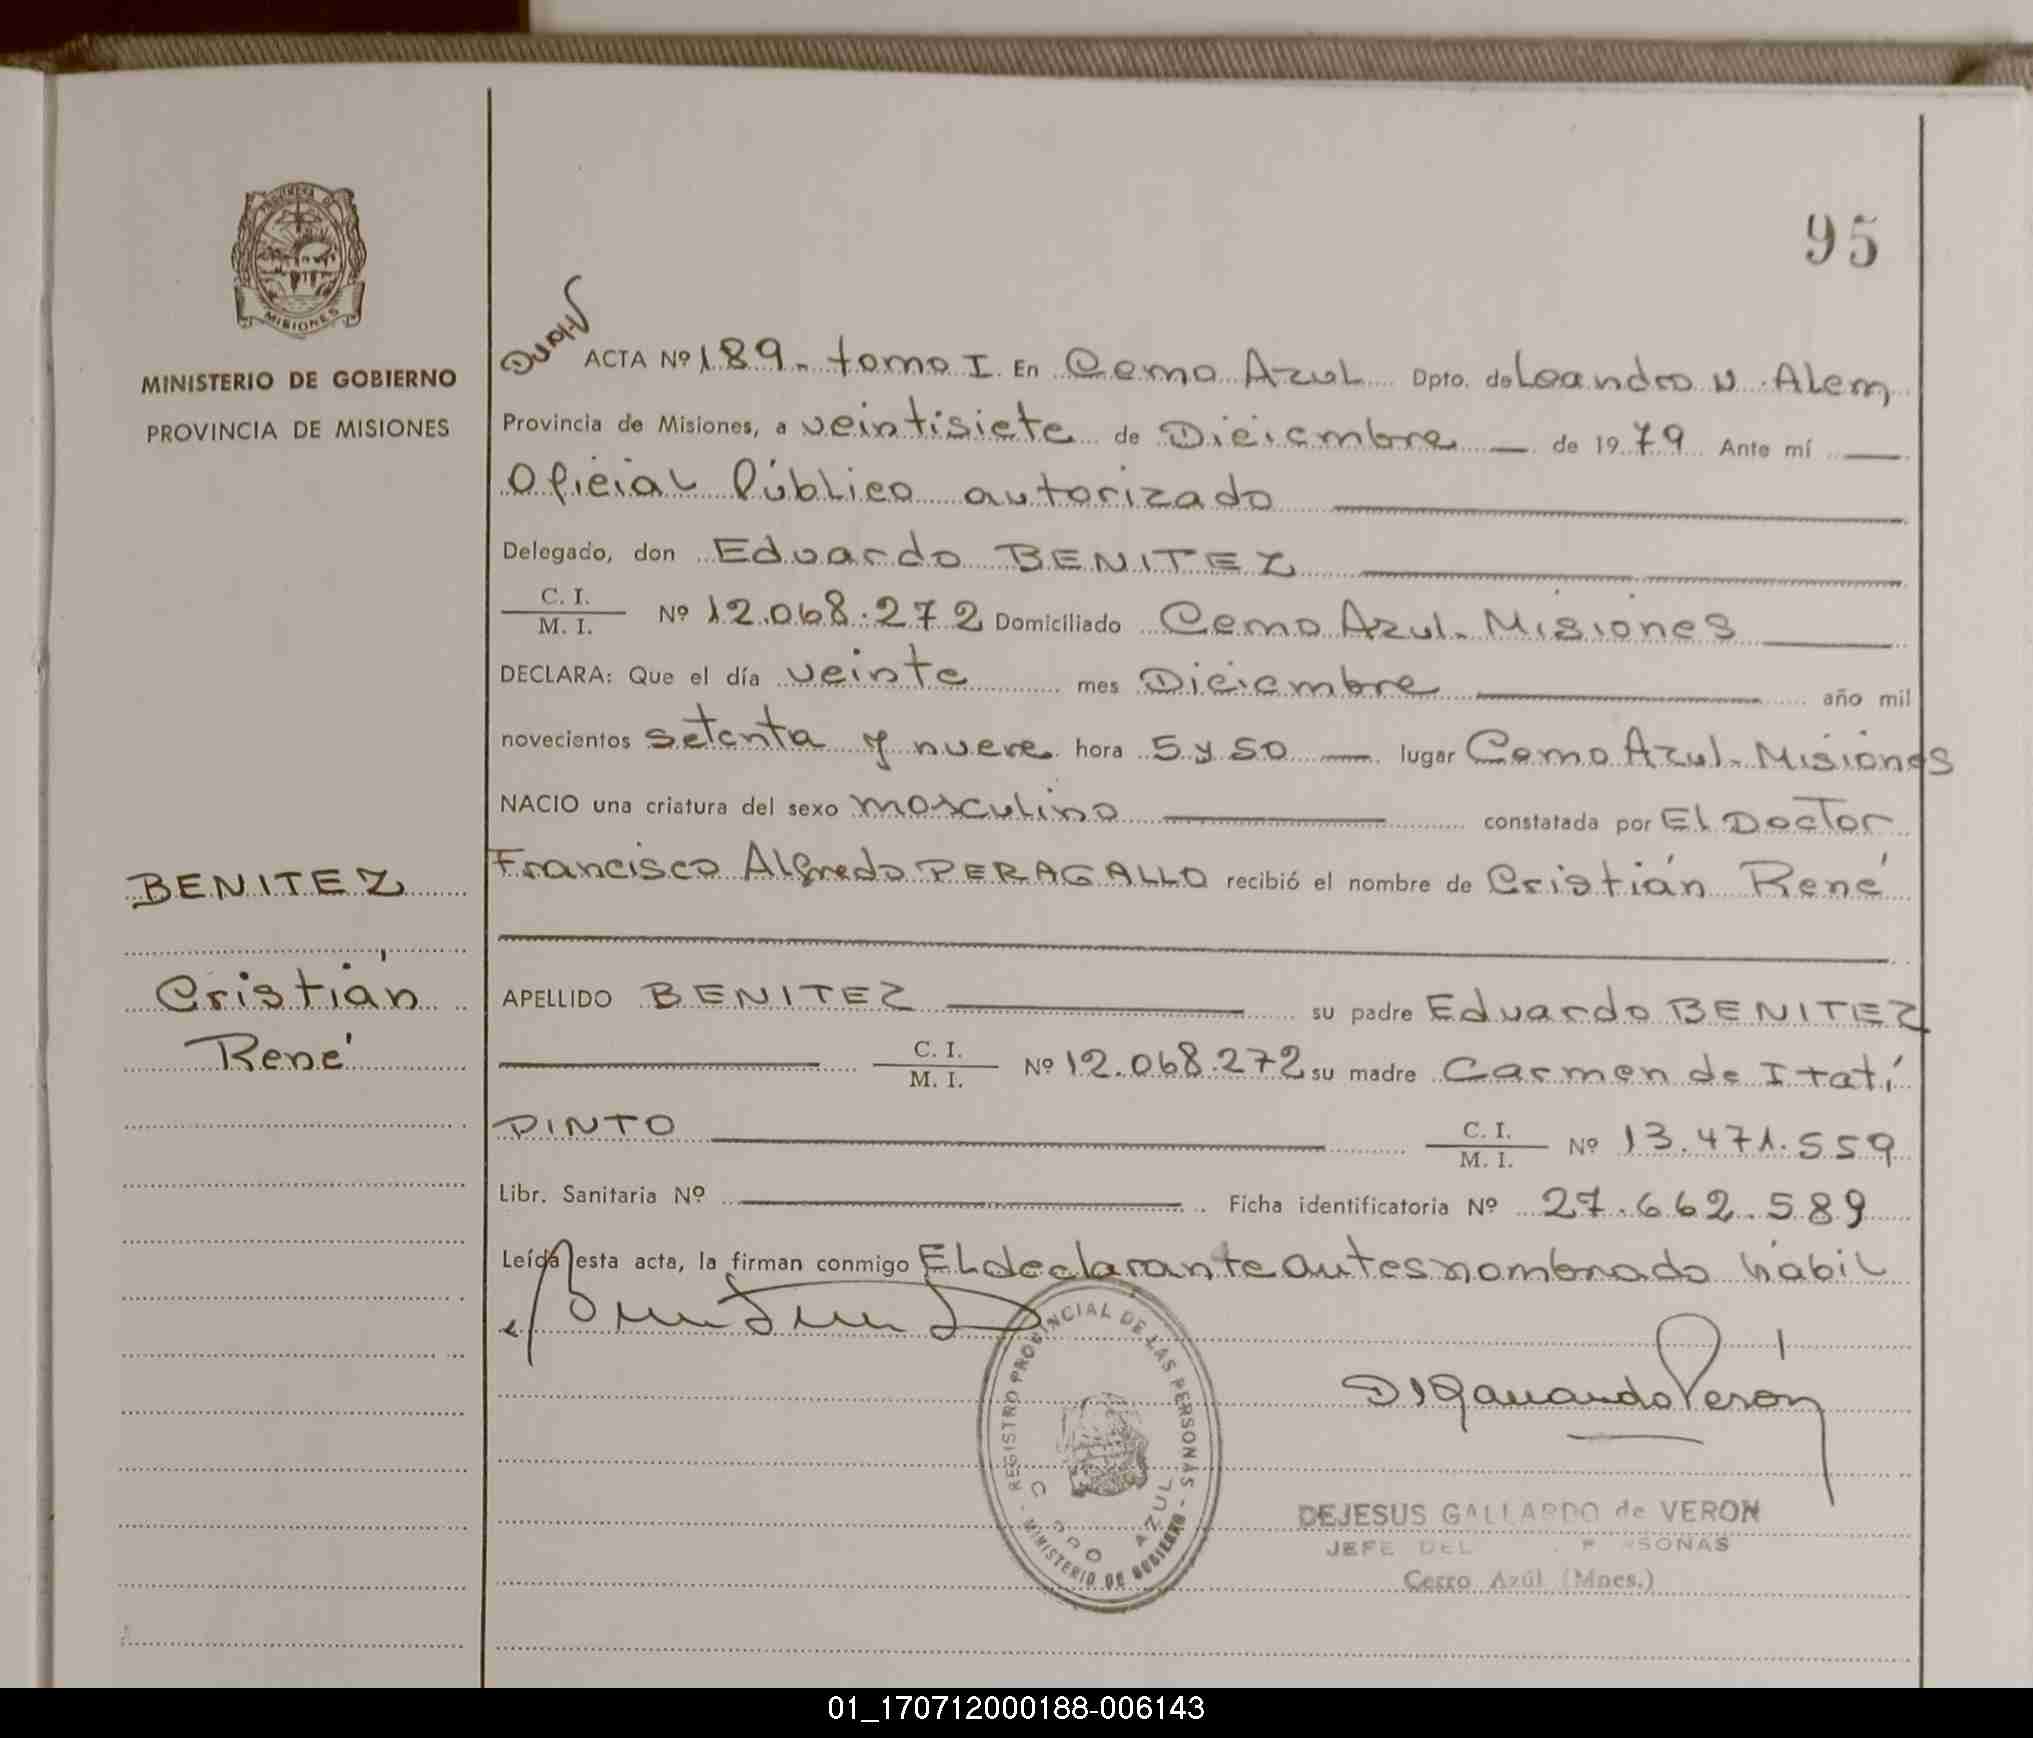 95
MISIONES
MINISTERIO DE GOBIERNO
PROVINCIA DE MISIONES
ACTA Nº 189. tomo I. En Cerro Azul Dpto. de Leandro N. Alem
Provincia de Misiones, a veintisiete de Diciembre — de 1979 Ante mí —
Oficial Público autorizado
Delegado, don Eduardo BENITEZ
C. I.
M. I. Nº 12.068.272 Domiciliado Cerro Azul. Misiones
DECLARA: Que el día veinte mes Diciembre año mil
novecientos setenta y nueve hora 5 y 50 — lugar Cerro Azul. Misiones
NACIO una criatura del sexo masculino constatada por El Doctor
Francisco Alfredo PERAGALLO recibió el nombre de Cristián René
BENITEZ
Cristián
René
APELLIDO BENITEZ su padre Eduardo BENITEZ
C. I.
M. I. Nº 12.068.272 su madre Carmen de Itatí
PINTO C. I.
M. I. Nº 13.471.559
Libr. Sanitaria Nº Ficha identificatoria Nº 27.662.589
Leída esta acta, la firman conmigo El declarante antes nombrado hábil
REGISTRO PROVINCIAL DE LAS PERSONAS - MINISTERIO DE GOBIERNO -
AZUL
DEJESUS GALLARDO de VERON
JEFE DEL
Cerro Azúl (Mnes.)
01_170712000188-006143